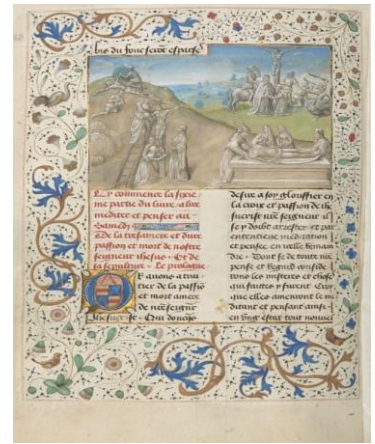 bris du foue scroe espase
Cy commence la sixie
me partie du liure a lire
mediter et penser au
Samedy
De la tresamere et dure
passion et mort de nostre
seigneur ihesus. Et de
sa sepulture. Le prologue
auons a trai
tier de la passio
et mort amere
de nre seigneur
Ihesucrist. Qui desire
desire a soy glorifier en
la croix et passion de ihe
sucrist nre seigneur il
se y doibt arrester et par
ententiue meditation
et pensee en veille
doe. Dont se de toute
pense et regard conside
rons les misteres et choses
qui faittes y furent Croy
que elles amenront le me
ditant et pensant ainsi
en vng estat tout nouuel